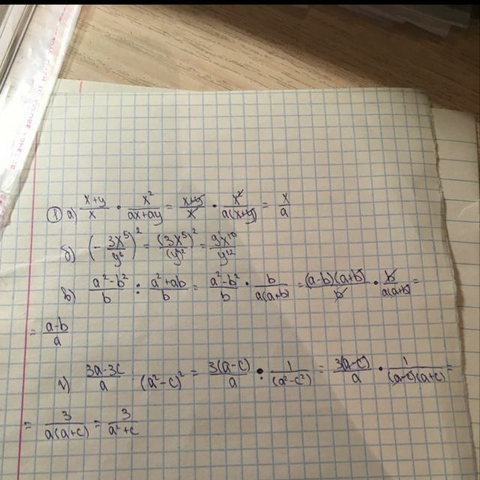 ① а) x+y/x · x²/ax+ay = x+y/x · x²/a(x+y) = x/a
б) (-3x⁵/y⁶)² = (3x⁵)²/(y⁶)² = 9x¹⁰/y¹²
в) a²-b²/b : a²+ab/b = a²-b²/b · b/a(a+b) = (a-b)(a+b)/b · b/a(a+b) =
= a-b/a
г) 3a-3c/a (a²-c)² = 3(a-c)/a : 1/(a²-c²) = 3(a-c)/a · 1/(a-c)(a+c) =
= 3/a(a+c) = 3/a²+c